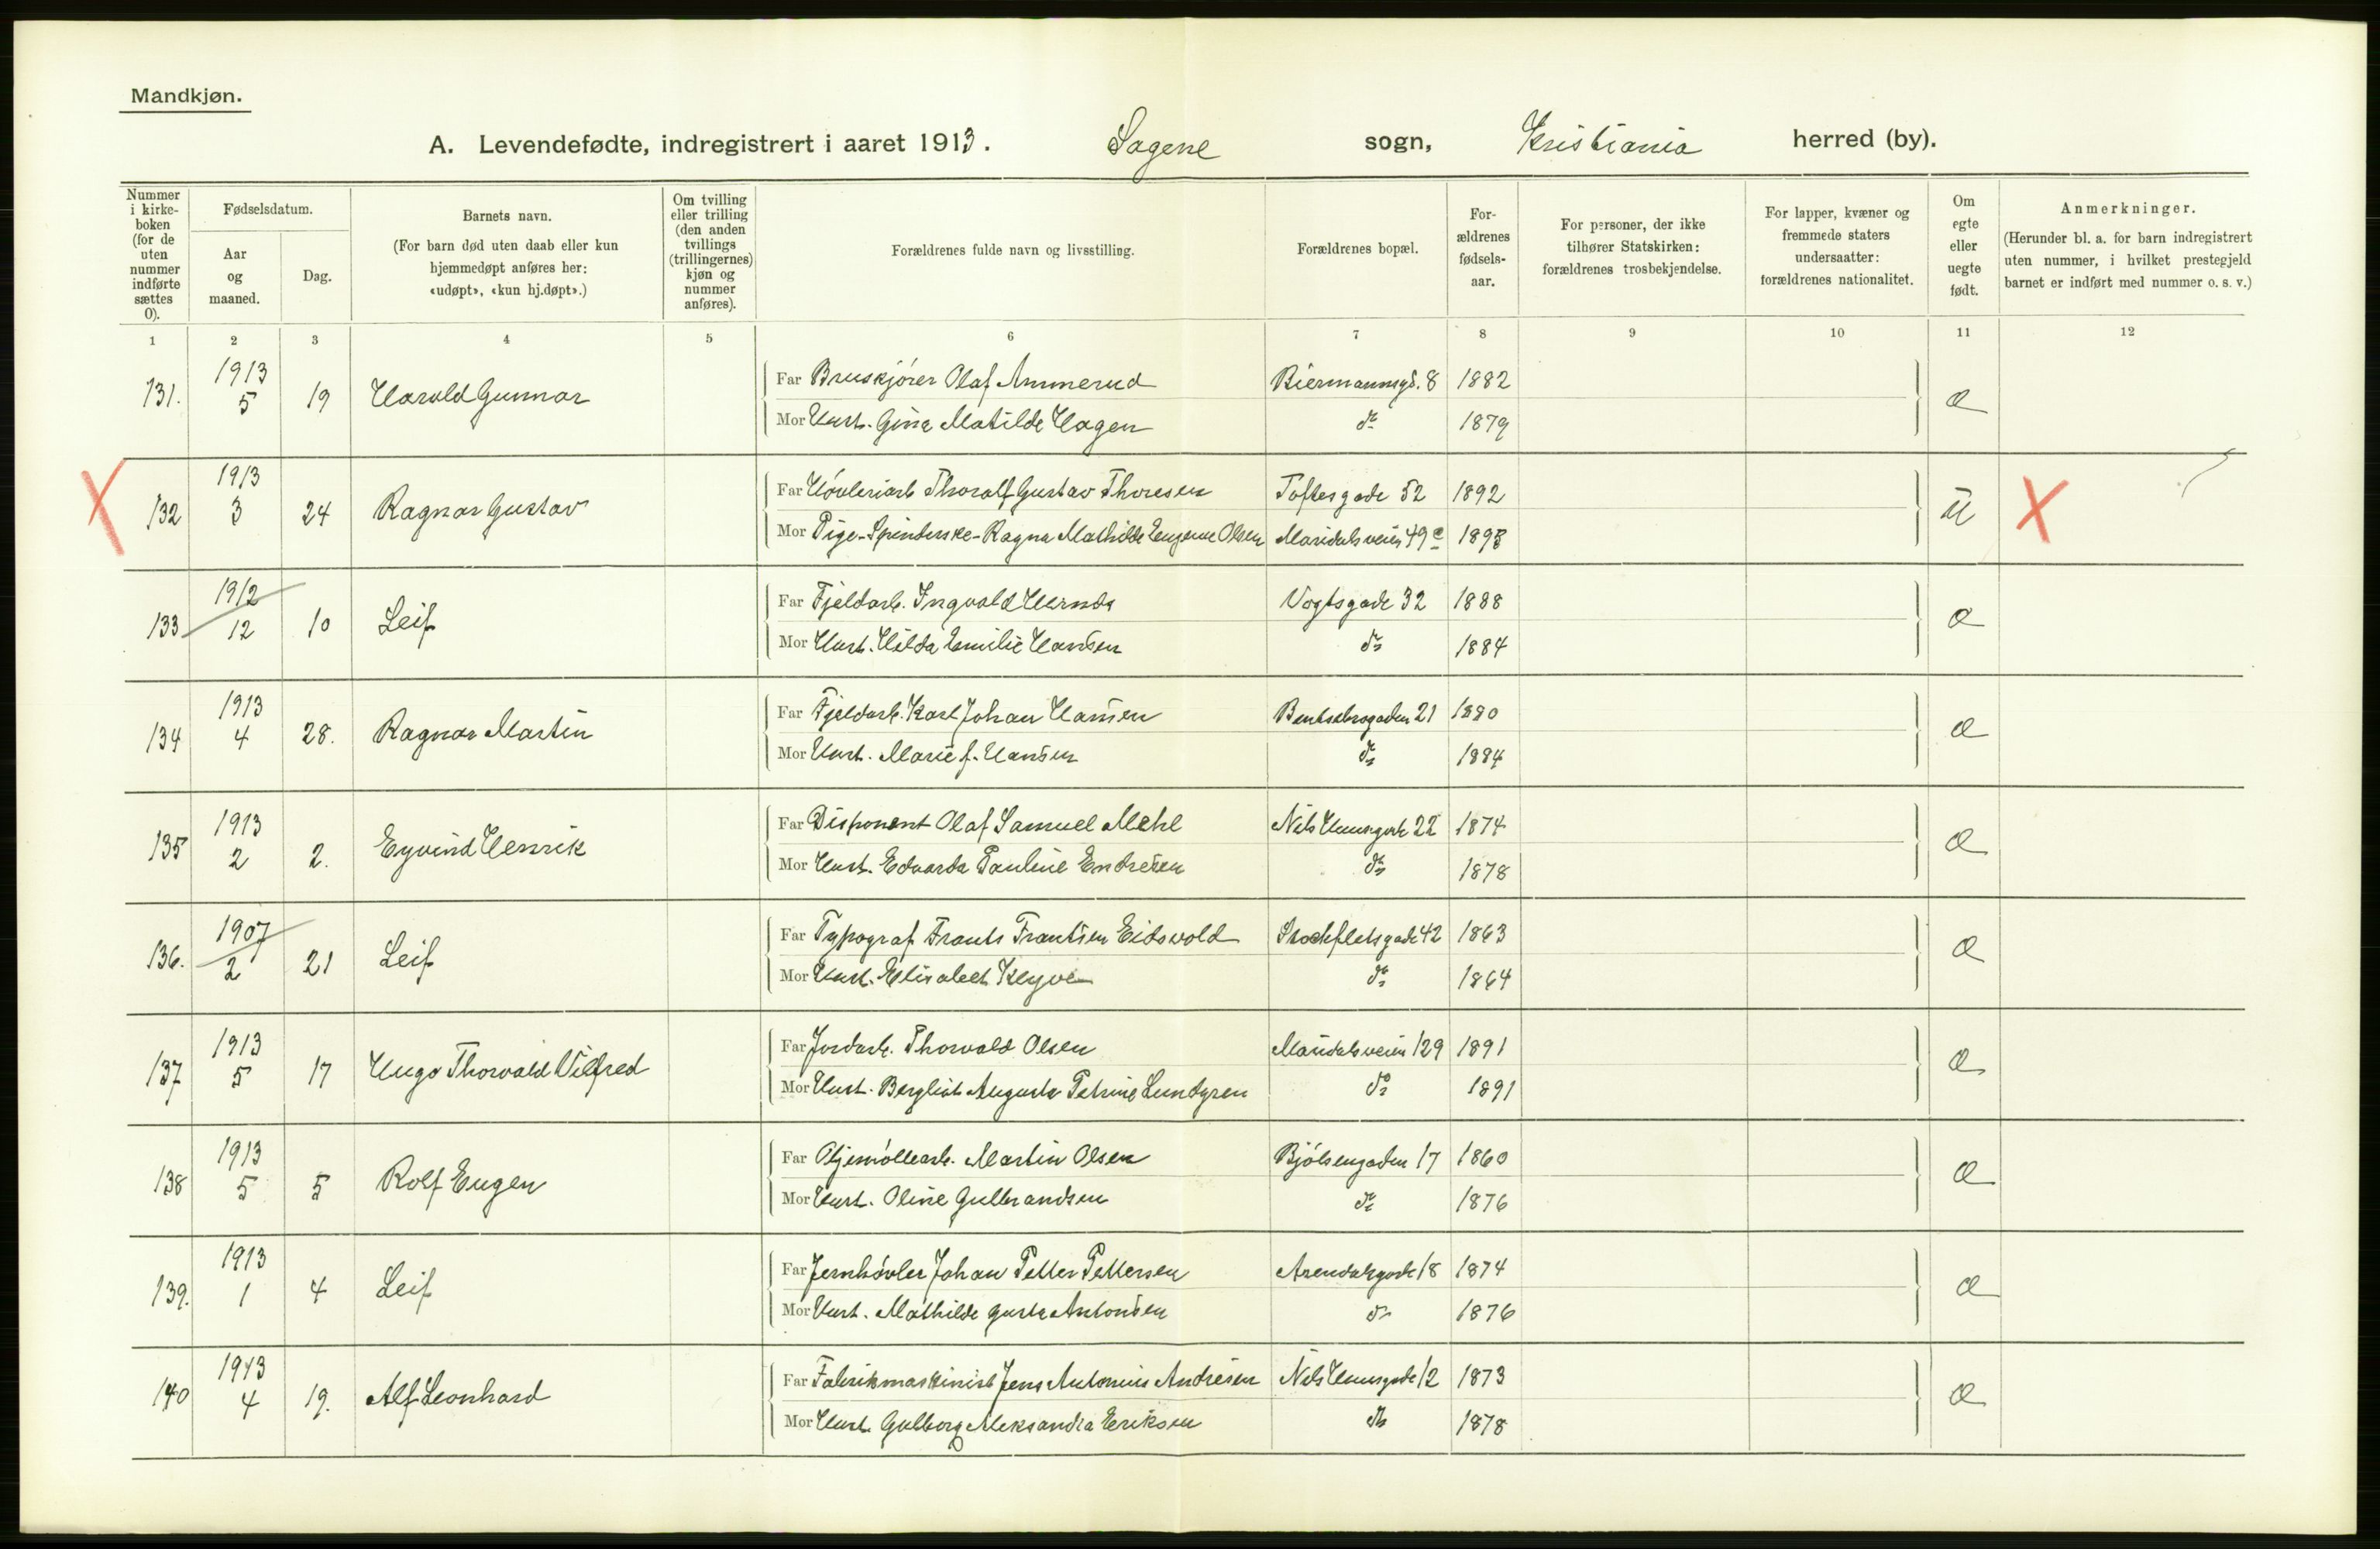 Mandkjøn.
A. Levendefødte, indregistrert i aaret 1913. Sagene sogn, Kristiania herred (by).
Nummer i kirke-boken (for de uten nummer indførte sættes 0).
Fødselsdatum.
Aar og maaned.
Dag.
Barnets navn.
(For barn død uten daab eller kun hjemmedøpt anføres her: «udøpt», «kun hj.døpt».)
Om tvilling eller trilling (den anden tvillings (trillingernes) kjøn og nummer anføres).
Forældrenes fulde navn og livsstilling.
Forældrenes bopæl.
For-ældrenes fødsels-aar.
For personer, der ikke tilhører Statskirken: forældrenes trosbekjendelse.
For lapper, kvæner og fremmede staters undersaatter: forældrenes nationalitet.
Om egte eller uegte født.
Anmerkninger.
(Herunder bl. a. for barn indregistrert uten nummer, i hvilket prestegjeld barnet er indført med nummer o. s. v.)
1 2 3 4 5 6 7 8 9 10 11 12
131. 1913 5 19 Harald Gunnar Far Bruskjører Olaf Ammerud Biermannsgd. 8 1882 æ
Mor Hust. Gina Matilde Hagen do 1879
X 132 1913 3 24 Ragnar Gustav Far Høvleriarb Thoralf Gustav Thoresen Toftesgade 52 1892 u X
Mor Pige-Spinderske-Ragna Mathilde Eugenie Olsen Maridalsveien 49c 1893
133 1912 12 10 Leif Far Fjeldarb. Ingvald Vogtsgade 32 1888 æ
Mor Hust. Hilda Emilie Hansen do 1884
134 1913 4 28. Ragnar Martin Far Fjeldarb. Karl Johan Hansen Bentsebrogaden 21 1880 æ
Mor Hust. Marie f. Hansen do 1884
135 1913 2 2. Eyvind Henrik Far Disponent Olaf Samuel Mehl Nils Huusgade 22 1874 æ
Mor Hust. Edvarda Pauline Endresen do 1878
136. 1907 2 21 Leif Far Typograf Frants Frantsen Eidsvold Stockfletsgade 42 1863 æ
Mor Hust. Elisabet do 1864
137 1913 5 17 Hugo Thorvald Vilfred Far Jordarb. Thorvald Olsen Maridalsveien 129 1891 æ
Mor Hust. Bergliot Augusta Petrine Lundgren do 1891
138 1913 5 5 Rolf Eugen Far Oljemøllearb. Martin Olsen Bjølsengaden 17 1860 æ
Mor Hust. Oline Gulbrandsen do 1876
139. 1913 1 4 Leif Far Jernhøvler Johan Petter Pettersen Arendalsgade 18 1874 æ
Mor Hust. Mathilde Antonsen do 1876
140 1913 4 19. Alf Leonhard Far Fabrikmaskinist Jens Antonius Andresen Nils Huusgade 12 1873 æ
Mor Hust. Gulborg Aleksandra Eriksen do 1878